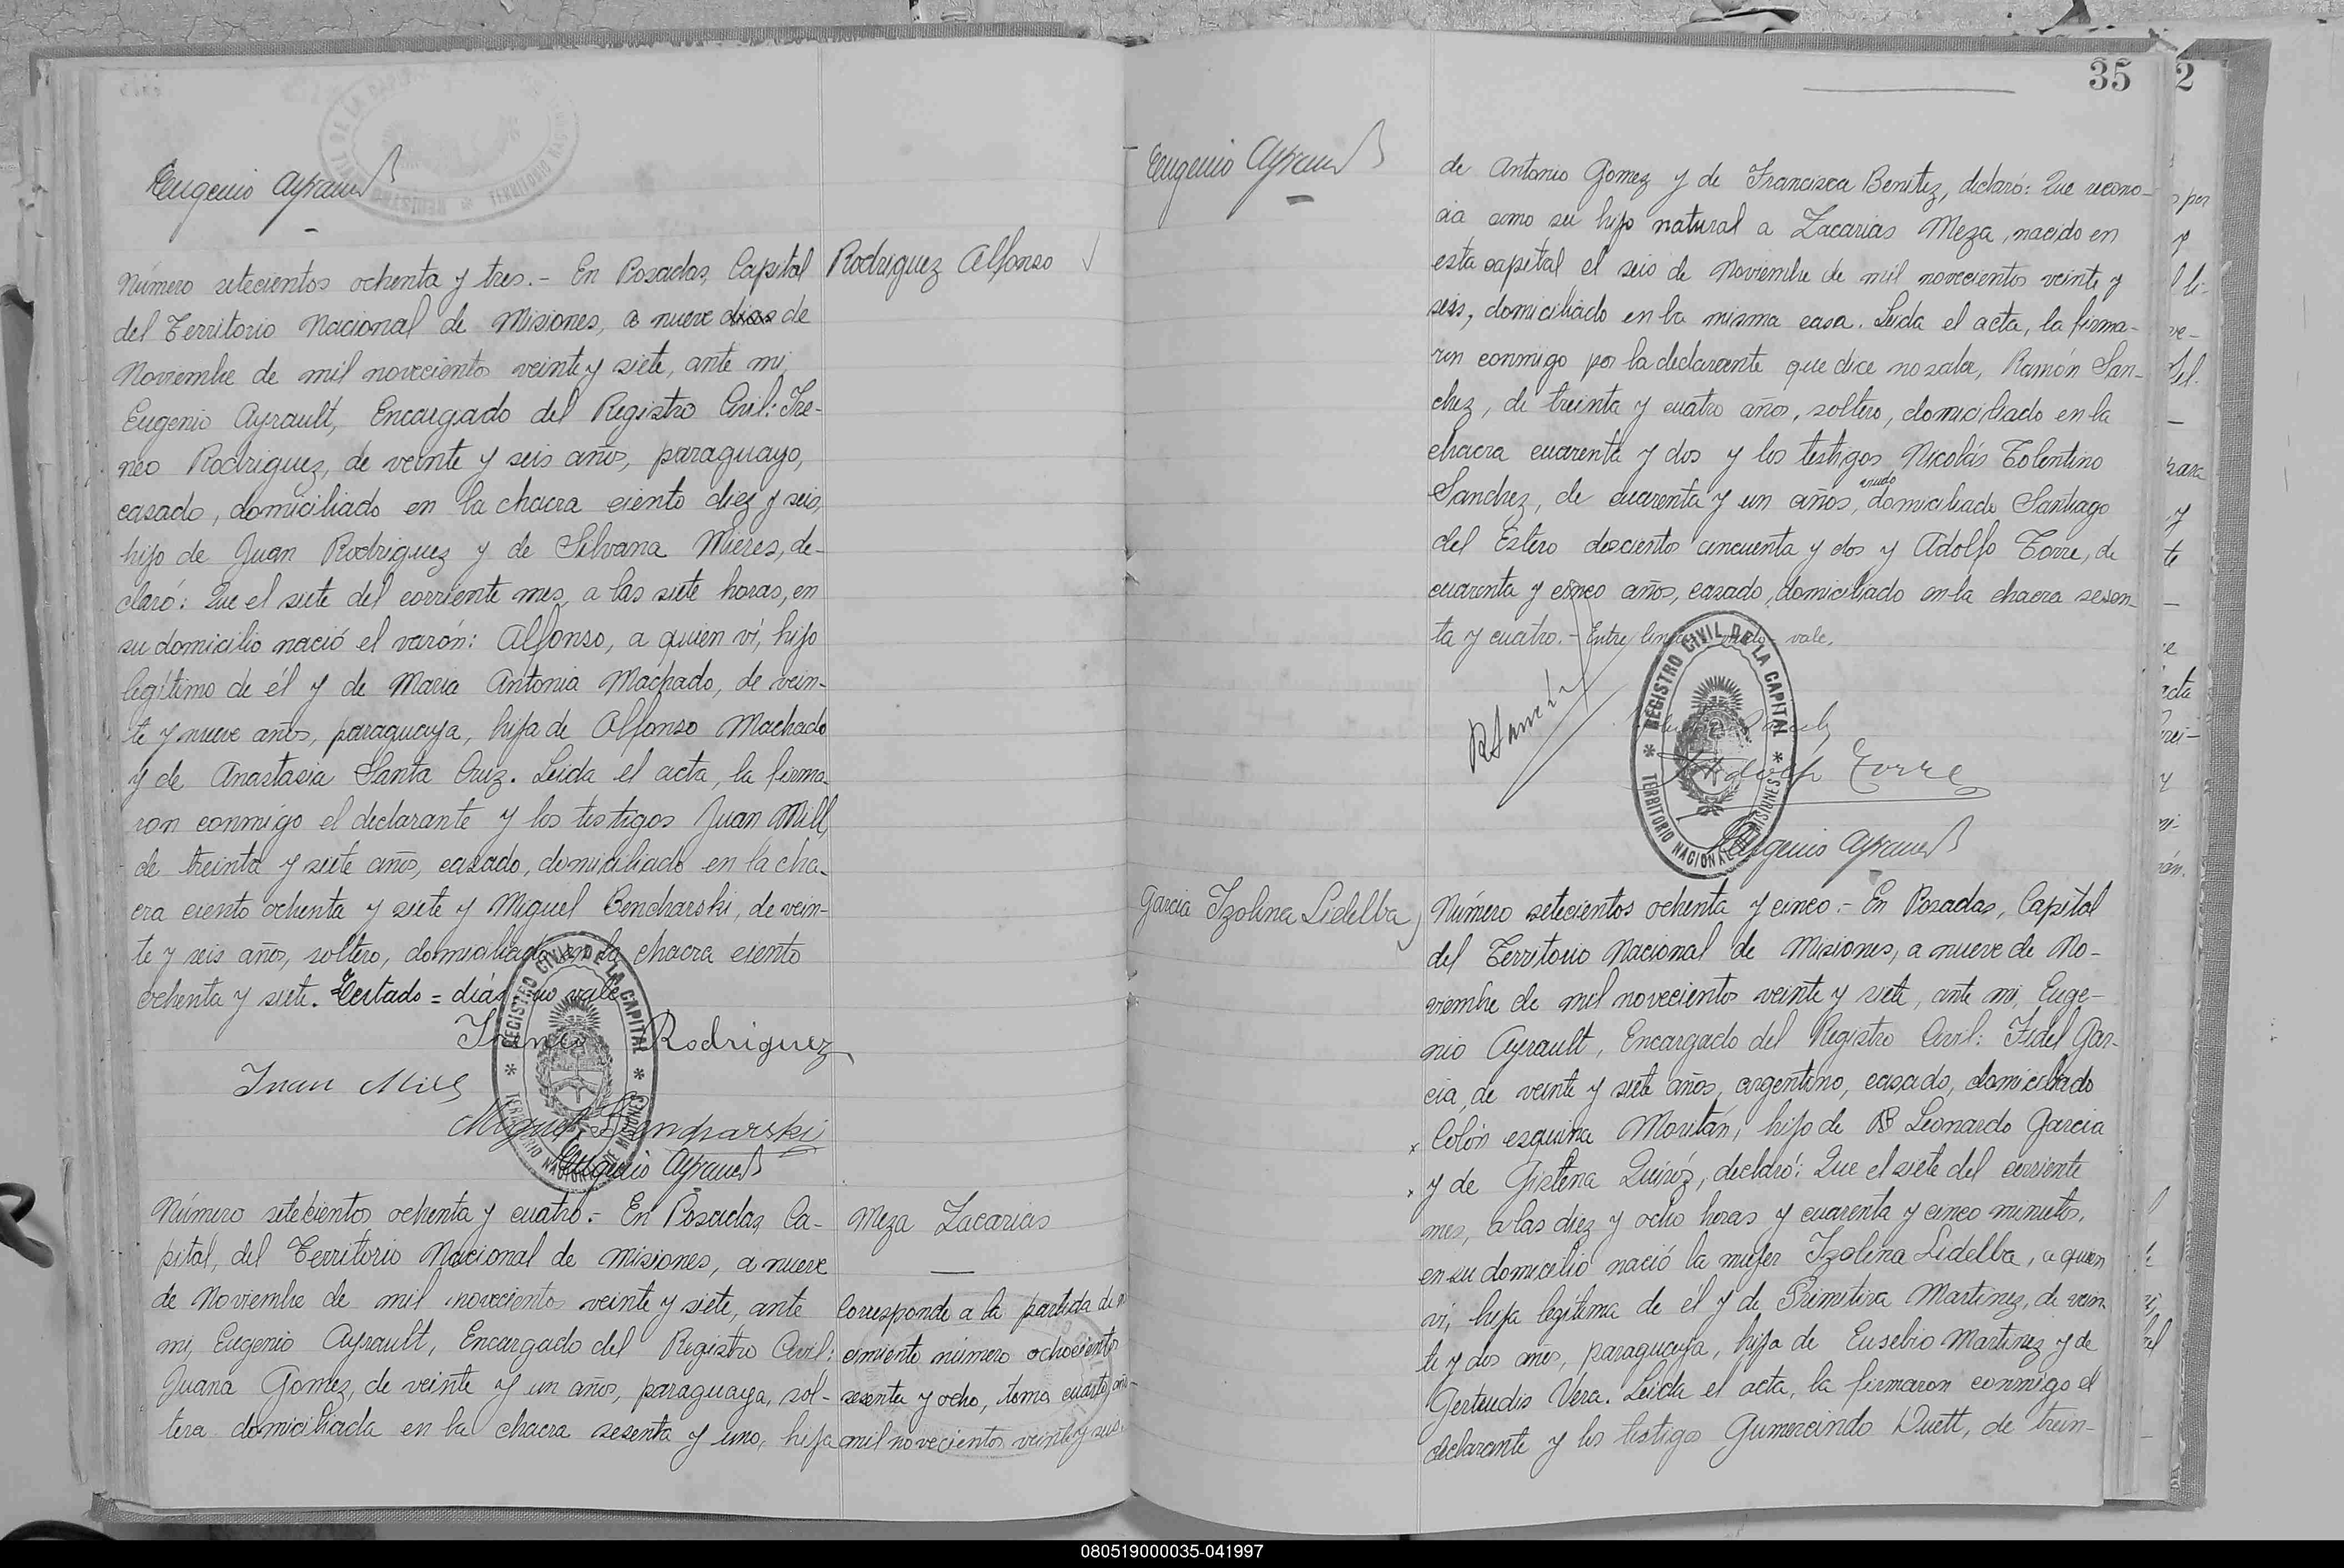 Eugenio Ayrault
Número setecientos ochenta y tres.- En Posadas, Capital
del Territorio Nacional de Misiones, a nueve dias de
Noviembre de mil novecientos veinte y siete, ante mi,
Eugenio Ayrault, Encargado del Registro Civil: Ire-
neo Rodriguez, de veinte y seis años, paraguayo,
casado, domiciliado en la chacra ciento diez y seis,
hijo de Juan Rodriguez y de Silvana Mieres, de-
claró: Que el siete del corriente mes, a las siete horas, en
su domicilio nació el varón: Alfonso, a quien ví, hijo
legítimo de él y de Maria Antonia Machado, de vein-
te y nueve años, paraguaya, hija de Alfonso Machado
y de Anastasia Santa Cruz. Leida el acta, la firma-
ron conmigo el declarante y los testigos Juan Mill,
de treinta y siete años, casado, domiciliado en la cha-
cra ciento ochenta y siete y Miguel Bencharski, de vein-
te y seis años, soltero, domiciliado en la chacra ciento
ochenta y siete. Testado = días no vale
Ireneo Rodriguez
Juan Mill
Miguel Bencharski
Eugenio Ayrault
REGISTRO CIVIL DE LA CAPITAL
* TERRITORIO NACIONAL DE MISIONES *
Rodriguez Alfonso
Número setecientos ochenta y cuatro.- En Posadas, Ca-
pital, del Territorio Nacional de Misiones, a nueve
de Noviembre de mil novecientos veinte y siete, ante
mi, Eugenio Ayrault, Encargado del Registro Civil:
Juana Gomez, de veinte y un años, paraguaya, sol-
tera domiciliada en la chacra sesenta y uno, hija
Meza Zacarias
Corresponde a la partida de na
cimiento número ochocientos
sesenta y ocho, tomo cuarto, año
mil novecientos veinte y seis.
35
2
Eugenio Ayrault
de Antonio Gomez y de Francisca Benitez, declaró: Que recono-
cia como su hijo natural a Zacarias Meza, nacido en
esta capital el seis de Noviembre de mil novecientos veinte y
seis, domiciliado en la misma casa. Leida el acta, la firma-
ron conmigo por la declarante que dice no saber, Ramón San-
chez, de treinta y cuatro años, soltero, domiciliado en la
chacra cuarenta y dos y los testigos Nicolás Tolentino
Sanchez, de cuarenta y un años, viudo domiciliado Santiago
del Estero doscientos cincuenta y dos y Adolfo Torre, de
cuarenta y cinco años, casado, domiciliado en la chacra sesen-
ta y cuatro.- Entre lineas viudo - vale.
Adolfo Torre
Eugenio Ayrault
REGISTRO CIVIL DE LA CAPITAL
* TERRITORIO NACIONAL DE MISIONES *
Garcia Izolina Lidelba
Número setecientos ochenta y cinco.- En Posadas, Capital
del Territorio Nacional de Misiones, a nueve de No-
viembre de mil novecientos veinte y siete, ante mi, Euge-
nio Ayrault, Encargado del Registro Civil: Fidel Gar-
cia, de veinte y siete años, argentino, casado, domiciliado
Colón esquina Moritán, hijo de Leonardo Garcia
y de Gistena Quiróz, declaró: Que el siete del corriente
mes, a las diez y ocho horas y cuarenta y cinco minutos,
en su domicilio nació la mujer Izolina Lidelba, a quien
ví, hija legítima de él y de Primitiva Martinez, de vein-
te y dos años, paraguaya, hija de Eusebio Martinez y de
Gertrudis Vera. Leida el acta, la firmaron conmigo el
declarante y los testigos Gumercindo Duett, de trein-
080519000035-041997